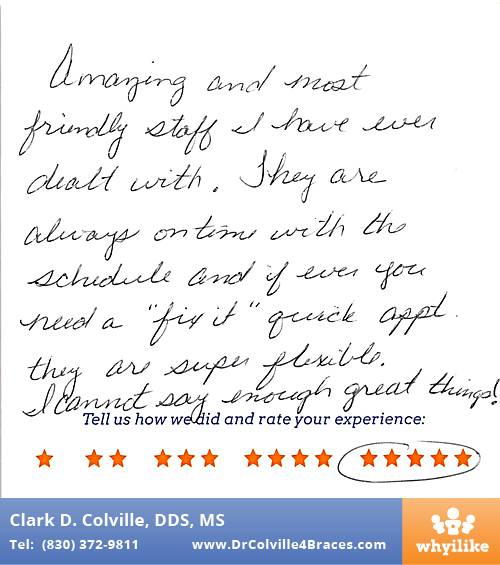 Amazing and most
friendly staff I have ever
dealt with. They are
always on time with the
schedule and if ever you
need a "fix it" quick appt.
they are super flexible.
I cannot say enough great things!
Tell us how we did and rate your experience:
Clark D. Colville, DDS, MS
Tel: (830) 372-9811 www.DrColville4Braces.com
whyilike